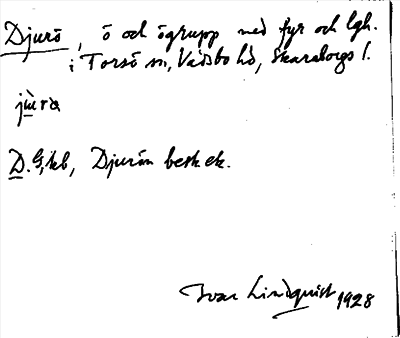 Djurö, ö och ögrupp med fyr och lgh.
i Torsö sn, Vadsbo hd, Skaraborgs l.
D. G, kb, Djurön besk ek.
Ivar Lindquist 1928